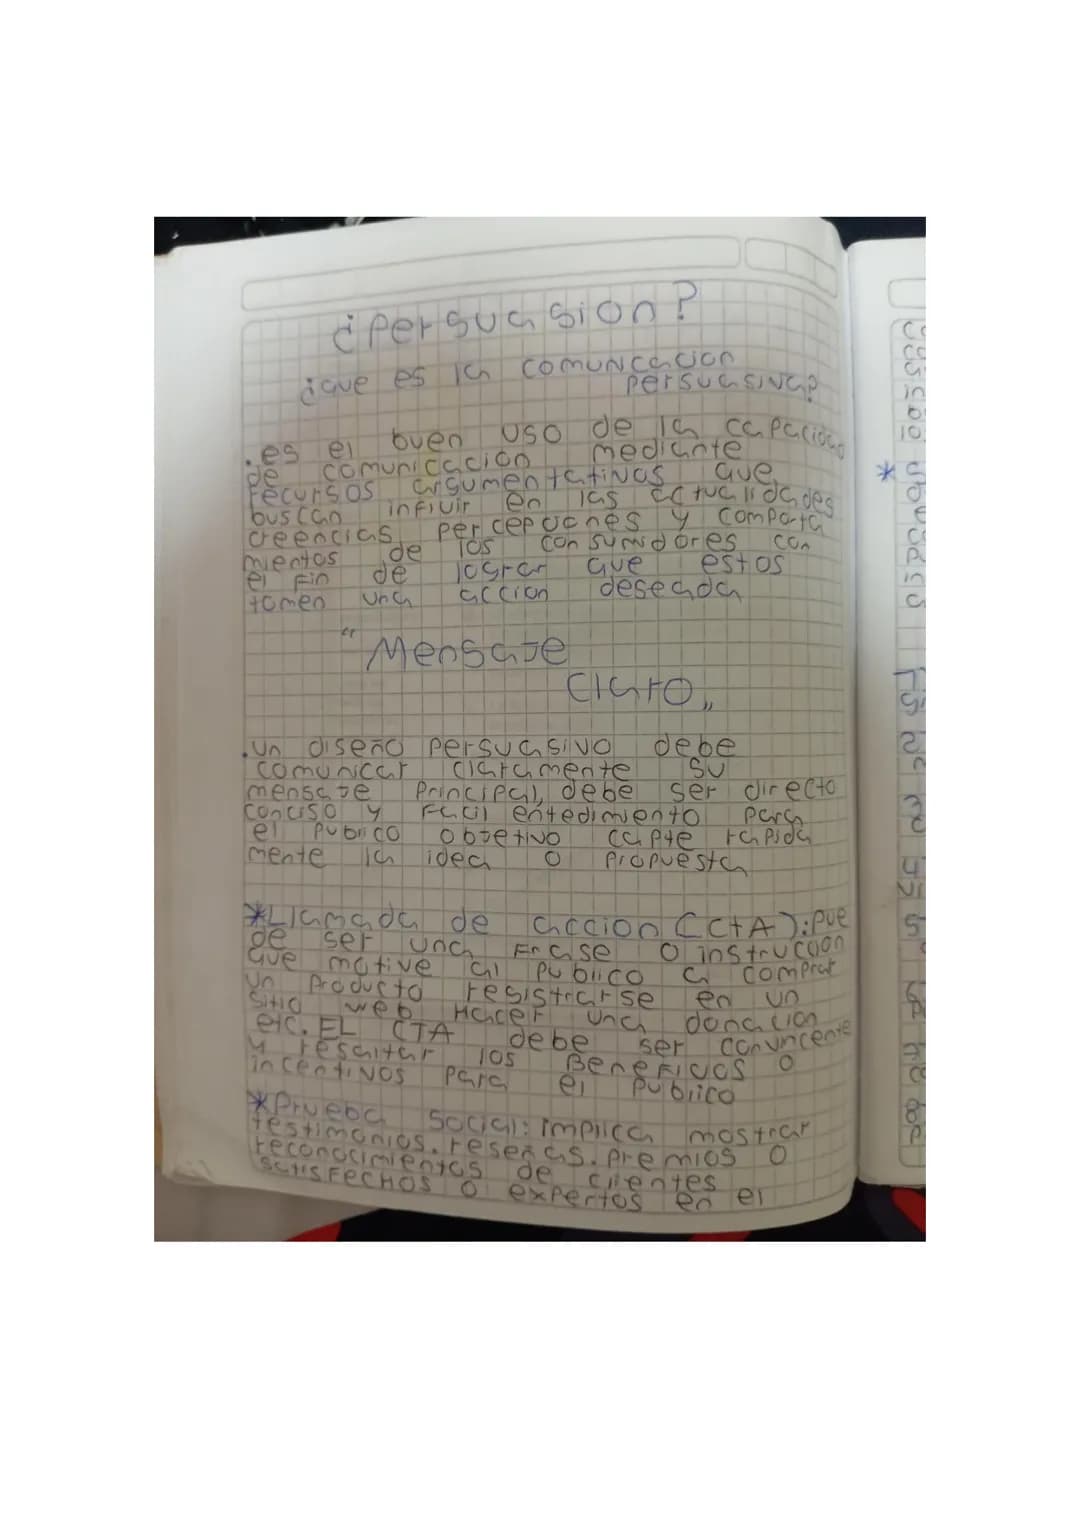 ¿persuasion?
¿que es la comuncacion
persuasiva?
.es el buen uso de la capacidad
de comunicacion mediante
recursos argumentativos que
buscan influir en las actualidades
creencias percepciones y comporta
mientos de los consumidores con
el fin de lograr que estos
tomen una accion deseada
"Mensaje
Claro"
.un diseño persuasivo debe
comunicar claramente su
mensaje principal, debe ser directo
conciso y facil entedimiento para
el publico objetivo capte rapida
mente la idea o propuesta
*Llamada de accion (CtA): pue
de ser una frase o instruccion
que motive al publico a comprar
un producto resistrarse en un
sitio web Hacer una donacion
etc. EL CTA debe ser convincente
y resaltar los Beneficios o
incentivos para el publico
*prueba social: implica mostrar
testimonios. reseñas. premios o
reconocimientos de clientes
satisfechos o expertos en el